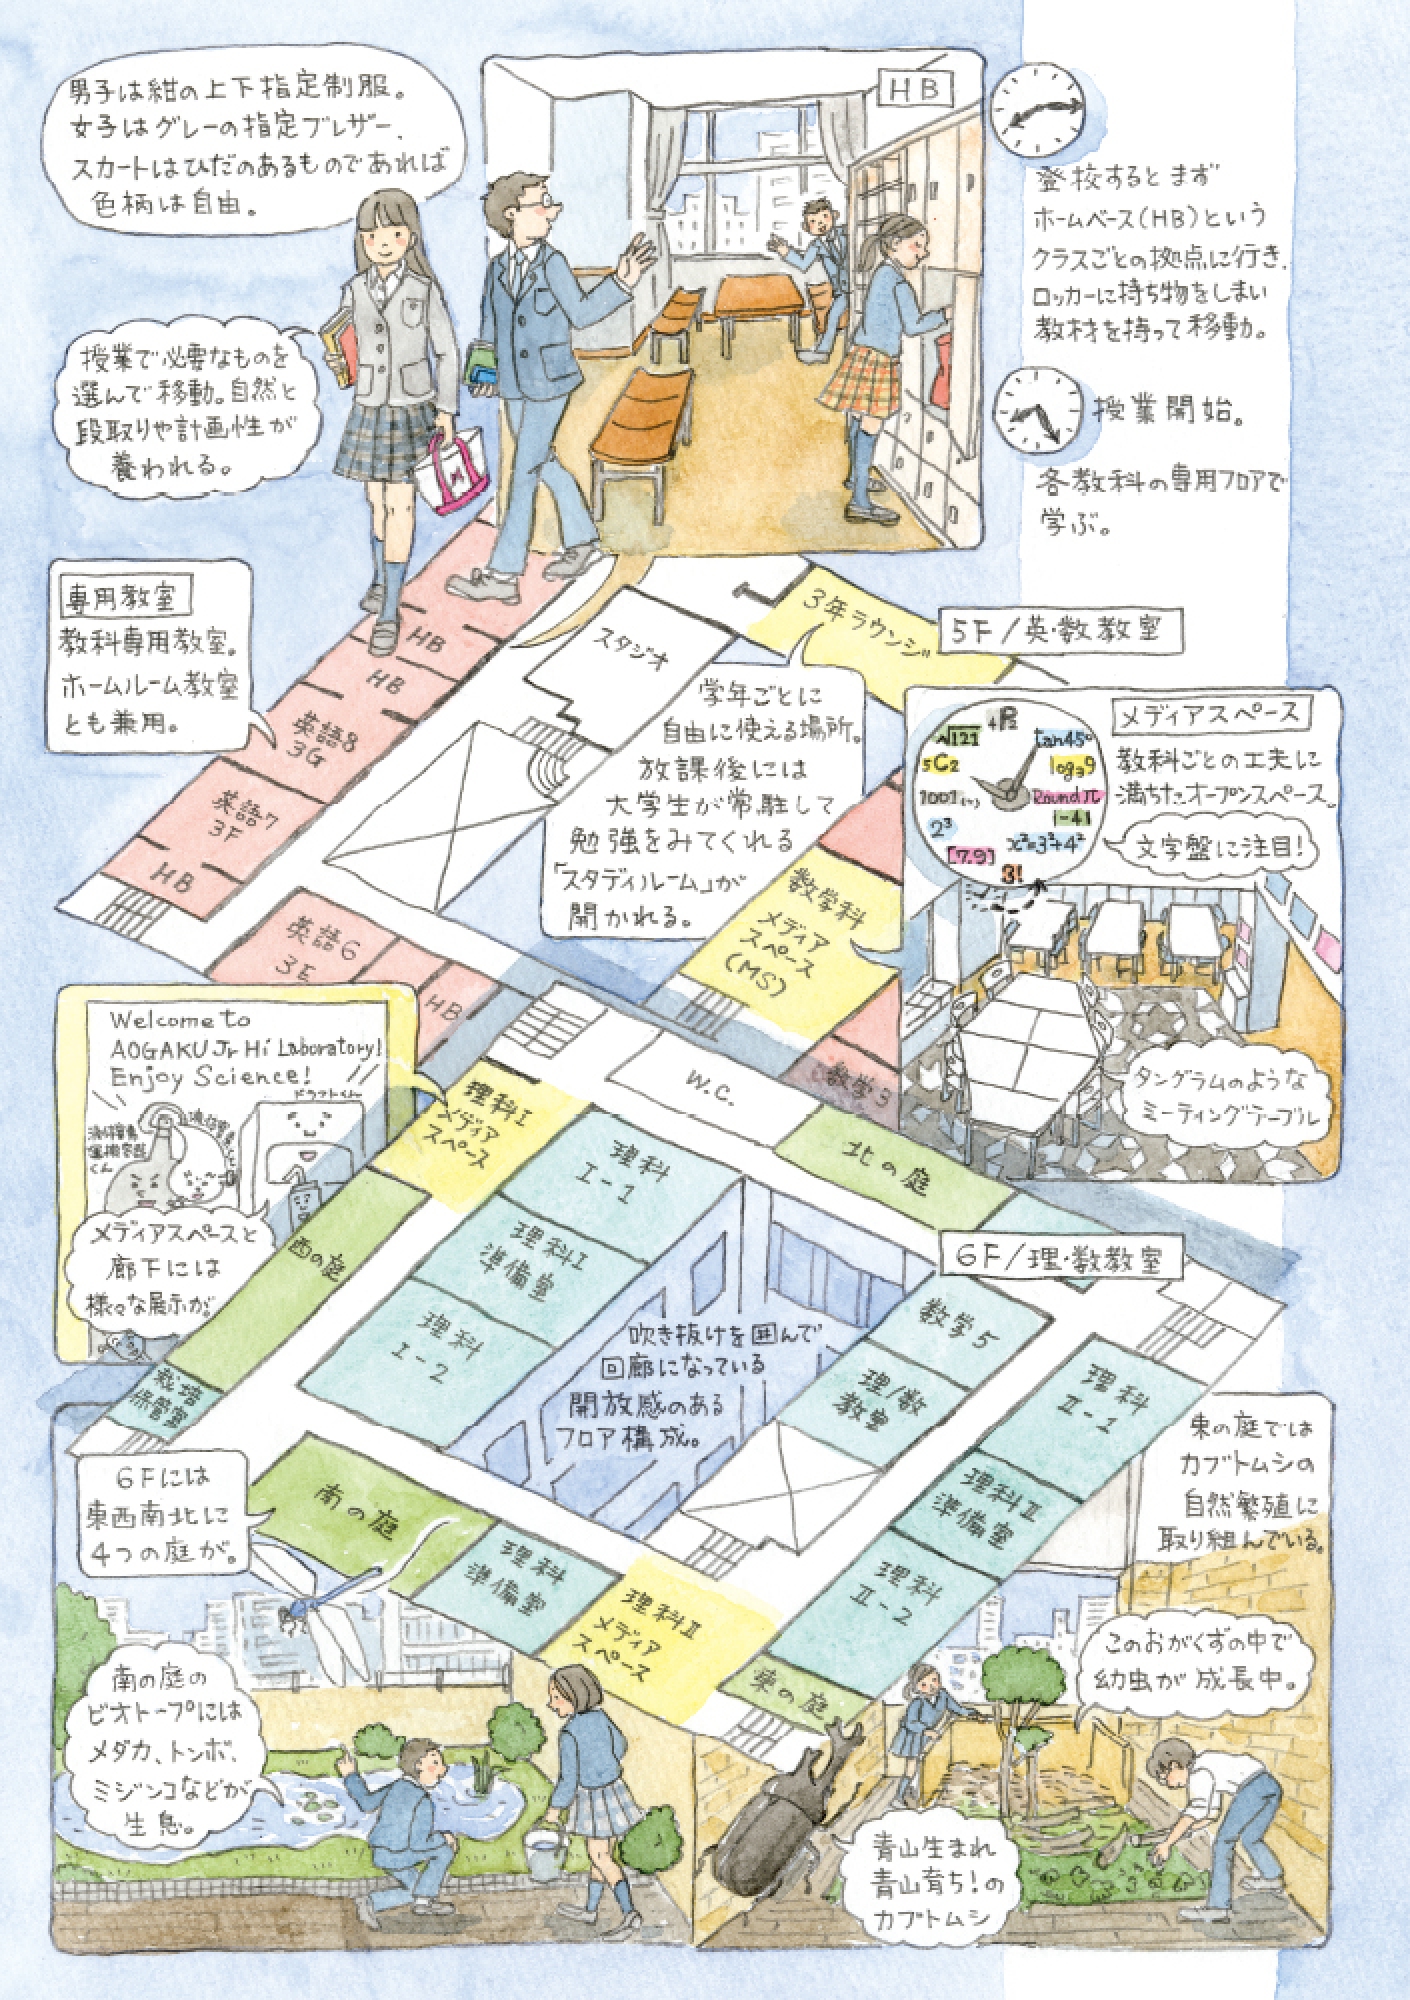 男子は紺の上下指定制服。
女子はグレーの指定ブレザー、
スカートはひだのあるものであれば
色柄は自由。
HB
登校するとまず
ホームベース(HB)という
クラスごとの拠点に行き、
ロッカーに持ち物をしまい
教材を持って移動。
授業開始。
各教科の専用フロアで
学ぶ。
授業で必要なものを
選んで移動。自然と
段取りや計画性が
養われる。
専用教室
教科専用教室。
ホームルーム教室
とも兼用。
HB
HB
英語8
3G
英語7
3F
HB
英語6
3E
HB
スタジオ
3年ラウンジ
5F/英・数教室
学年ごとに
自由に使える場所。
放課後には
大学生が常駐して
勉強をみてくれる
「スタディルーム」が
開かれる。
メディアスペース
教科ごとの工夫に
満ちたオープンスペース。
文字盤に注目!
√121
4P2
tan45°
log39
Round π
|-4|
x²=3²+4²
3!
[7.9]
2³
1001(2)
5C2
タングラムのような
ミーティングテーブル
数学科
メディア
スペース
(MS)
数学3
W.C.
Welcome to
AOGAKU Jr Hi Laboratory!
Enjoy Science!
ドラフトくん
メディアスペースと
廊下には
様々な展示が。
理科I
メディア
スペース
理科
I-1
理科I
準備室
理科
I-2
西の庭
栽培
保管室
北の庭
6F/理・数教室
吹き抜けを囲んで
回廊になっている
開放感のある
フロア構成。
数学5
理/数
教室
理科
II-1
理科II
準備室
理科
II-2
6Fには
東西南北に
4つの庭が。
南の庭
理科
準備室
理科II
メディア
スペース
東の庭
東の庭では
カブトムシの
自然繁殖に
取り組んでいる。
南の庭の
ビオトープには
メダカ、トンボ、
ミジンコなどが
生息。
このおがくずの中で
幼虫が成長中。
青山生まれ
青山育ち!の
カブトムシ